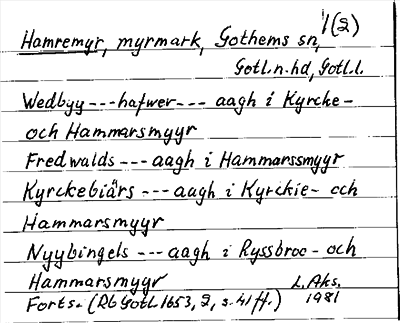 Hamremyr, myrmark, Gothems sn, 1(2)
Gotl.n.hd, Gotl.l.
Wedbyy --- hafwer --- aagh i Kyrcke-
och Hammarsmyyr
Fredwalds --- aagh i Hammarssmyyr
Kyrckebiärs --- aagh i Kyrckie- och
Hammarsmyyr
Nyybingels --- aagh i Ryssbroo- och
Hammarsmyyr L. Aks.
Forts. (Rb Gotl. 1653, 2, s. 41 ff.) 1981